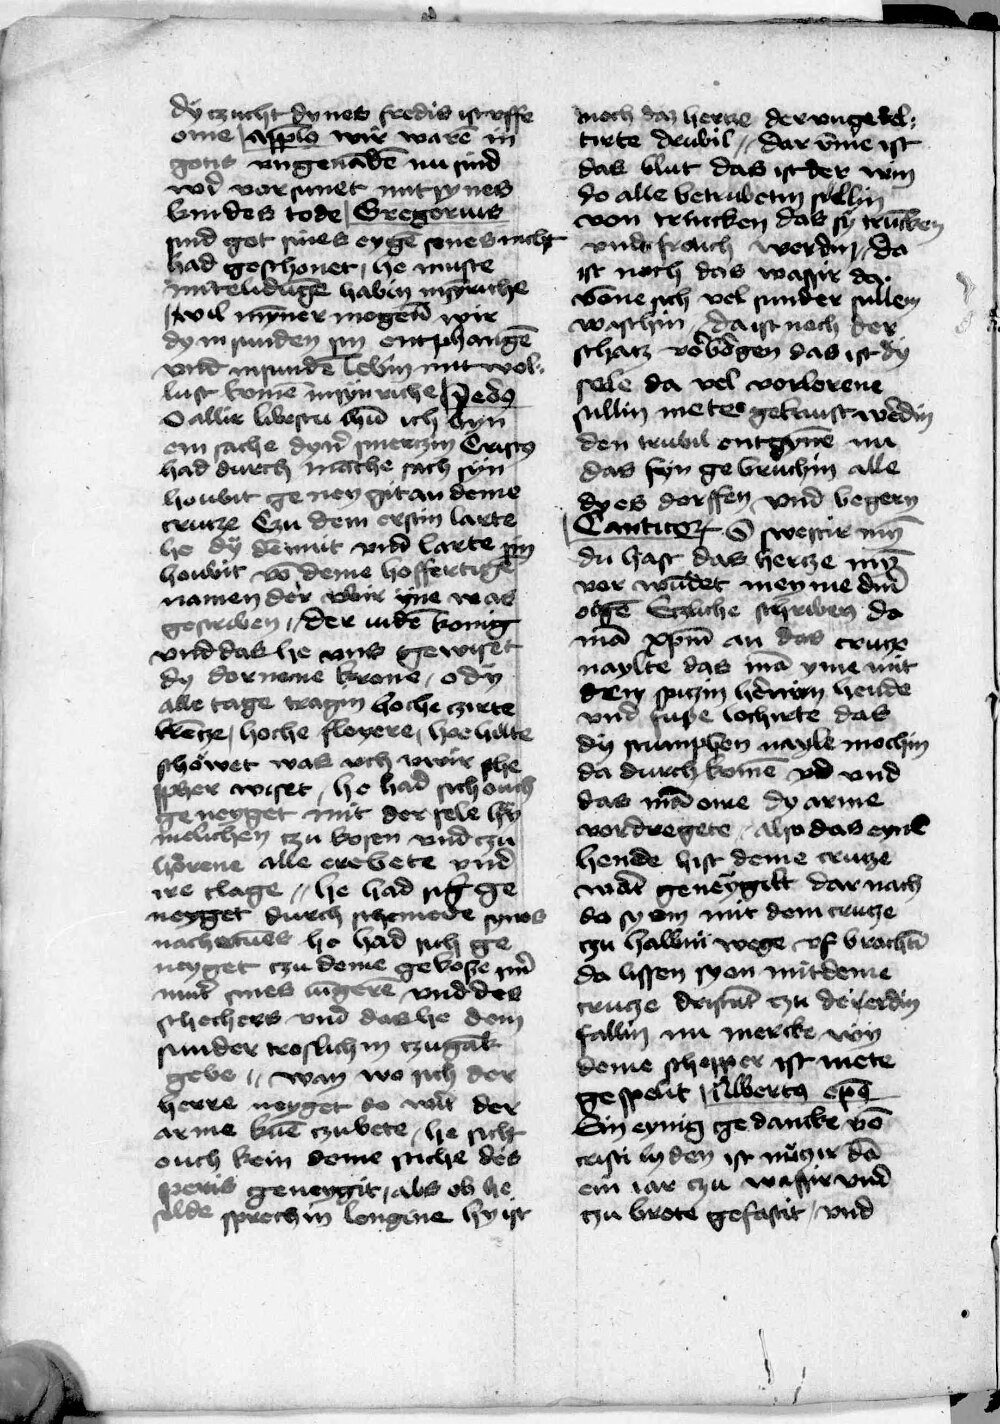 dy czucht dynes fredis ist vffe
ome applo wir warē in
gotis vngenadē nu sind
wir vorsunet mit synes
kindes tode Gregorius
sind got sines eygē sones nicht
had geschonet, he muste
mitelidūge habin
wil myner mogen wir
dy in sunden sin entphangē
vnd in sundē lebin mit wol-
lust komē in syn riche Beds
O allir libestu ich byn
ein sache dynr smerczin Cristus
had durch manche sach syn
houbit geneygit an deme
crucze Czu dem erstin larte
he dy demut vnd larte sin
houbit vō deme hoffertigē
namen der vbir yme was
gescriben, der iudē konig
vnd das he vns gewiset
dy dornene krone, o dy
alle tage tragin hoche czirte
krēcze, hoche floyere, hoe hulte
schowet was vch uwir sche
pher wiset, he had sich ouch
geneyget mit der sele hy
melichen czu kosen vnd czu
hōrene alle erebete vnd
ire clage, he had sich ge
neyget durch schemede synes
nacketūes he had sich ge
neyget czu deme gekose sinr
mutr sines iūgere vnd des
schechers vnd das he dem
sunder troslichin czugāk
gebe, wan wo sich der
herre neyget do wirt der
arme kuē czu bete, he sicht
ouch kein deme stiche des
speris geneygit, abs ob he
sulde sprechin longine hy ist
noch daz hercze der vngedel-
tirte drubil, dar vme ist
das blut das ist der win
do alle betrubetin sullin
von trincken das sy trūcken
vnd frolich werdin, da
ist noch das wassir do
vōne sich vel sunder sullen
waschin, da ist noch der
schatz vorborgen das ist dy
sele da vel vorlorene
sullin mete gekouft werdin
den trubil entgynē nu
das syn gebruchin alle
dy es dorffen vnd begern
Canticor O swestir myn
du hast das hercze myn
vorwūdet in eyme dinr
ougē Etzliche schriben do
mā xpm an das crucze
naylte das mā yme mit
den spiczin hende
vnd fuse lochirte das
dy stumphen nayle mochin
da durch komē vnd
das mā ome dy arme
vordregete, also das eynē
hende hist deme crucze
wart geneygitt dar nach
do sy om mit dem crucze
czu halbin wege vf brachtē
da lissen sy on mit deme
crucze dristūt czu der erdin
fallin nu mercke wy
deme schepper ist mete
gespelt, Albertus eps
Ein eynig gedancke vō
cristi lyden ist nuczir dā
ein iar czu wassir vnd
czu brote gefastit, vnd